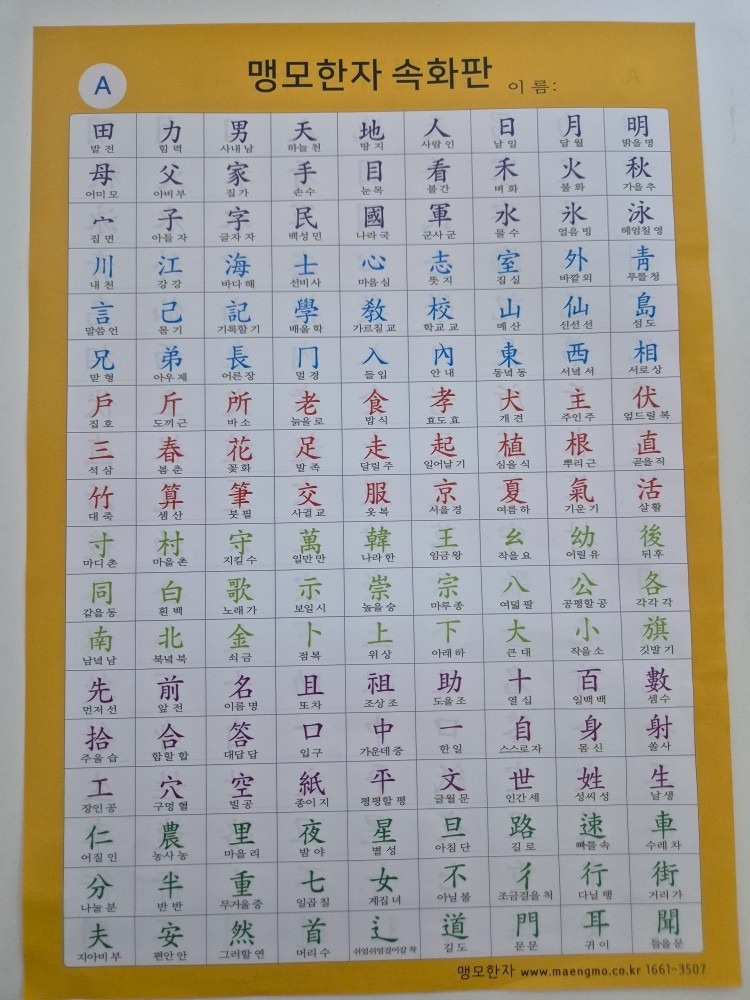 A
맹모한자 속화판
이 름:
田 力 男 天 地 人 日 月 明
밭 전 힘 력 사내 남 하늘 천 땅 지 사람 인 날 일 달 월 밝을 명
母 父 家 手 目 看 禾 火 秋
어미 모 아비 부 집 가 손 수 눈 목 볼 간 벼 화 불 화 가을 추
宀 子 字 民 國 軍 水 氷 泳
집 면 아들 자 글자 자 백성 민 나라 국 군사 군 물 수 얼음 빙 헤엄칠 영
川 江 海 士 心 志 室 外 靑
내 천 강 강 바다 해 선비 사 마음 심 뜻 지 집 실 바깥 외 푸를 청
言 己 記 學 敎 校 山 仙 島
말씀 언 몸 기 기록할 기 배울 학 가르칠 교 학교 교 메 산 신선 선 섬 도
兄 弟 長 冂 入 內 東 西 相
맏 형 아우 제 어른 장 멀 경 들 입 안 내 동녘 동 서녘 서 서로 상
戶 斤 所 老 食 孝 犬 主 伏
집 호 도끼 근 바 소 늙을 로 밥 식 효도 효 개 견 주인 주 엎드릴 복
三 春 花 足 走 起 植 根 直
석 삼 봄 춘 꽃 화 발 족 달릴 주 일어날 기 심을 식 뿌리 근 곧을 직
竹 算 筆 交 服 京 夏 氣 活
대 죽 셈 산 붓 필 사귈 교 옷 복 서울 경 여름 하 기운 기 살 활
寸 村 守 萬 韓 王 幺 幼 後
마디 촌 마을 촌 지킬 수 일만 만 나라 한 임금 왕 작을 요 어릴 유 뒤 후
同 白 歌 示 崇 宗 八 公 各
같을 동 흰 백 노래 가 보일 시 높을 숭 마루 종 여덟 팔 공평할 공 각각 각
南 北 金 卜 上 下 大 小 旗
남녘 남 북녘 북 쇠 금 점 복 위 상 아래 하 큰 대 작을 소 깃발 기
先 前 名 且 祖 助 十 百 數
먼저 선 앞 전 이름 명 또 차 조상 조 도울 조 열 십 일백 백 셈 수
拾 合 答 口 中 一 自 身 射
주울 습 합할 합 대답 답 입 구 가운데 중 한 일 스스로 자 몸 신 쏠 사
工 穴 空 紙 平 文 世 姓 生
장인 공 구멍 혈 빌 공 종이 지 평평할 평 글월 문 인간 세 성씨 성 날 생
仁 農 里 夜 星 旦 路 速 車
어질 인 농사 농 마을 리 밤 야 별 성 아침 단 길 로 빠를 속 수레 차
分 半 重 七 女 不 彳 行 街
나눌 분 반 반 무거울 중 일곱 칠 계집 녀 아닐 불 조금걸을 척 다닐 행 거리 가
夫 安 然 首 辶 道 門 耳 聞
지아비 부 편안 안 그러할 연 머리 수 쉬엄쉬엄걸어갈 착 길 도 문 문 귀 이 들을 문
맹모한자 www.maengmo.co.kr 1661-3507